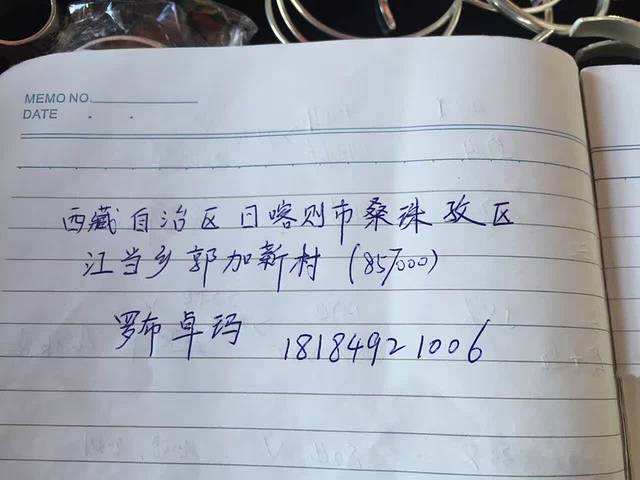 MEMO NO.
DATE . .
西藏自治区日喀则市桑珠孜区
江当乡郭加新村 (857000)
罗布卓玛 18184921006